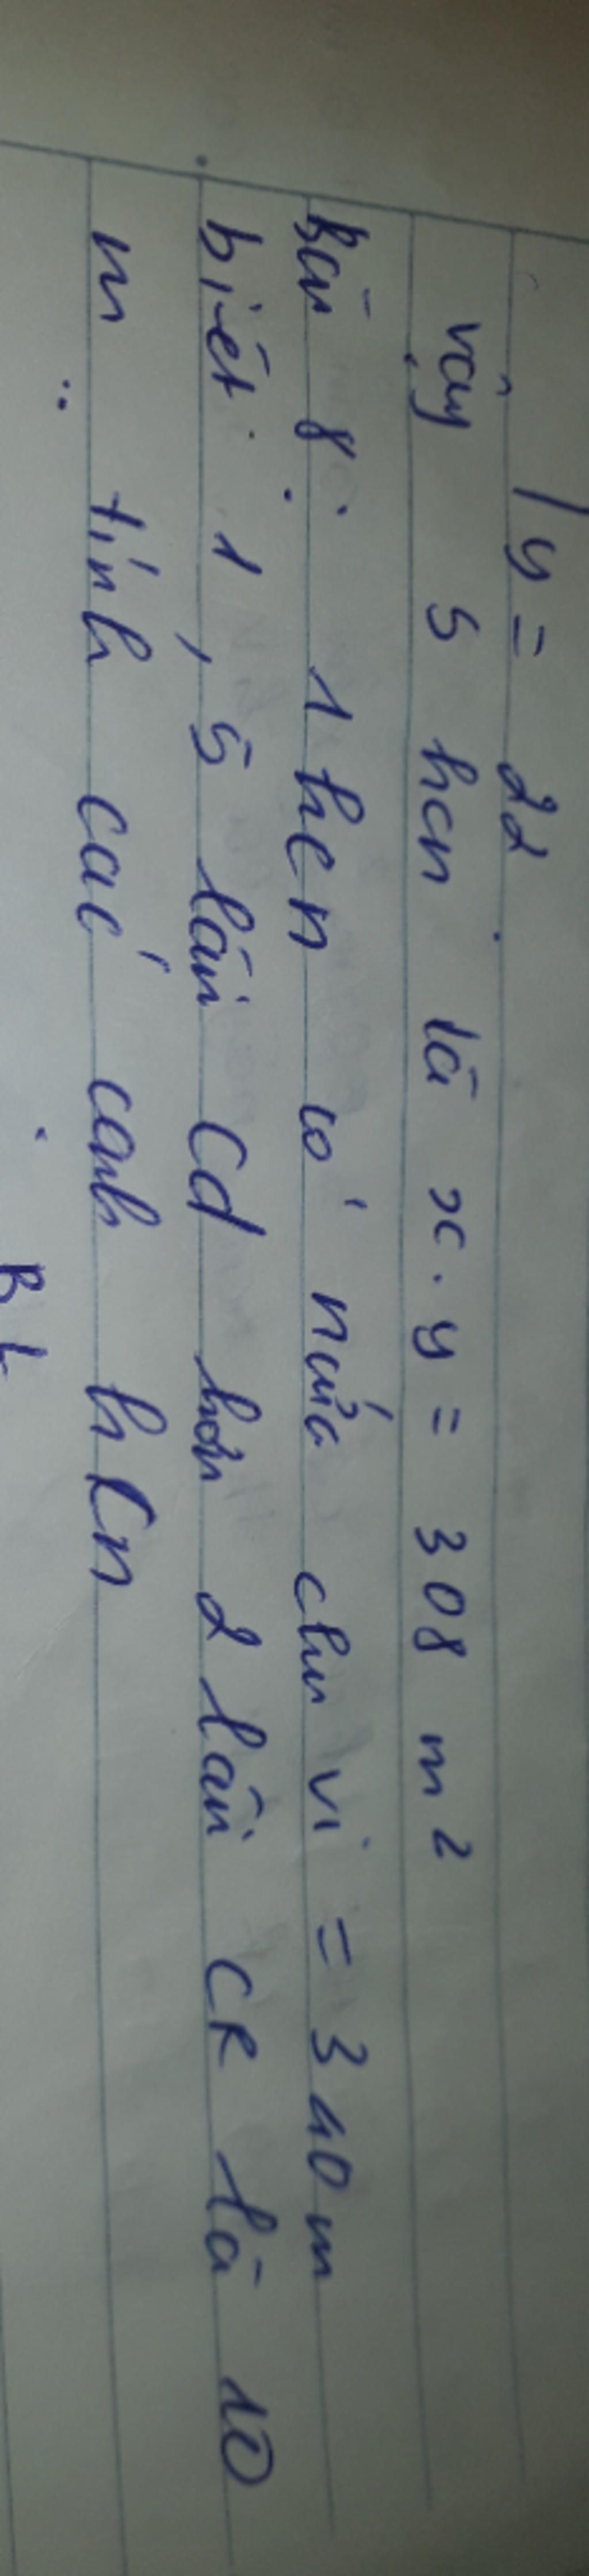 y = 22
vậy S hcn là x.y = 308 m²
Bài 8: 1 hcn có nửa chu vi = 340 m
biết 1,5 lần Cd hơn 2 lần CR là 10
m. tính các cạnh hCn
BL